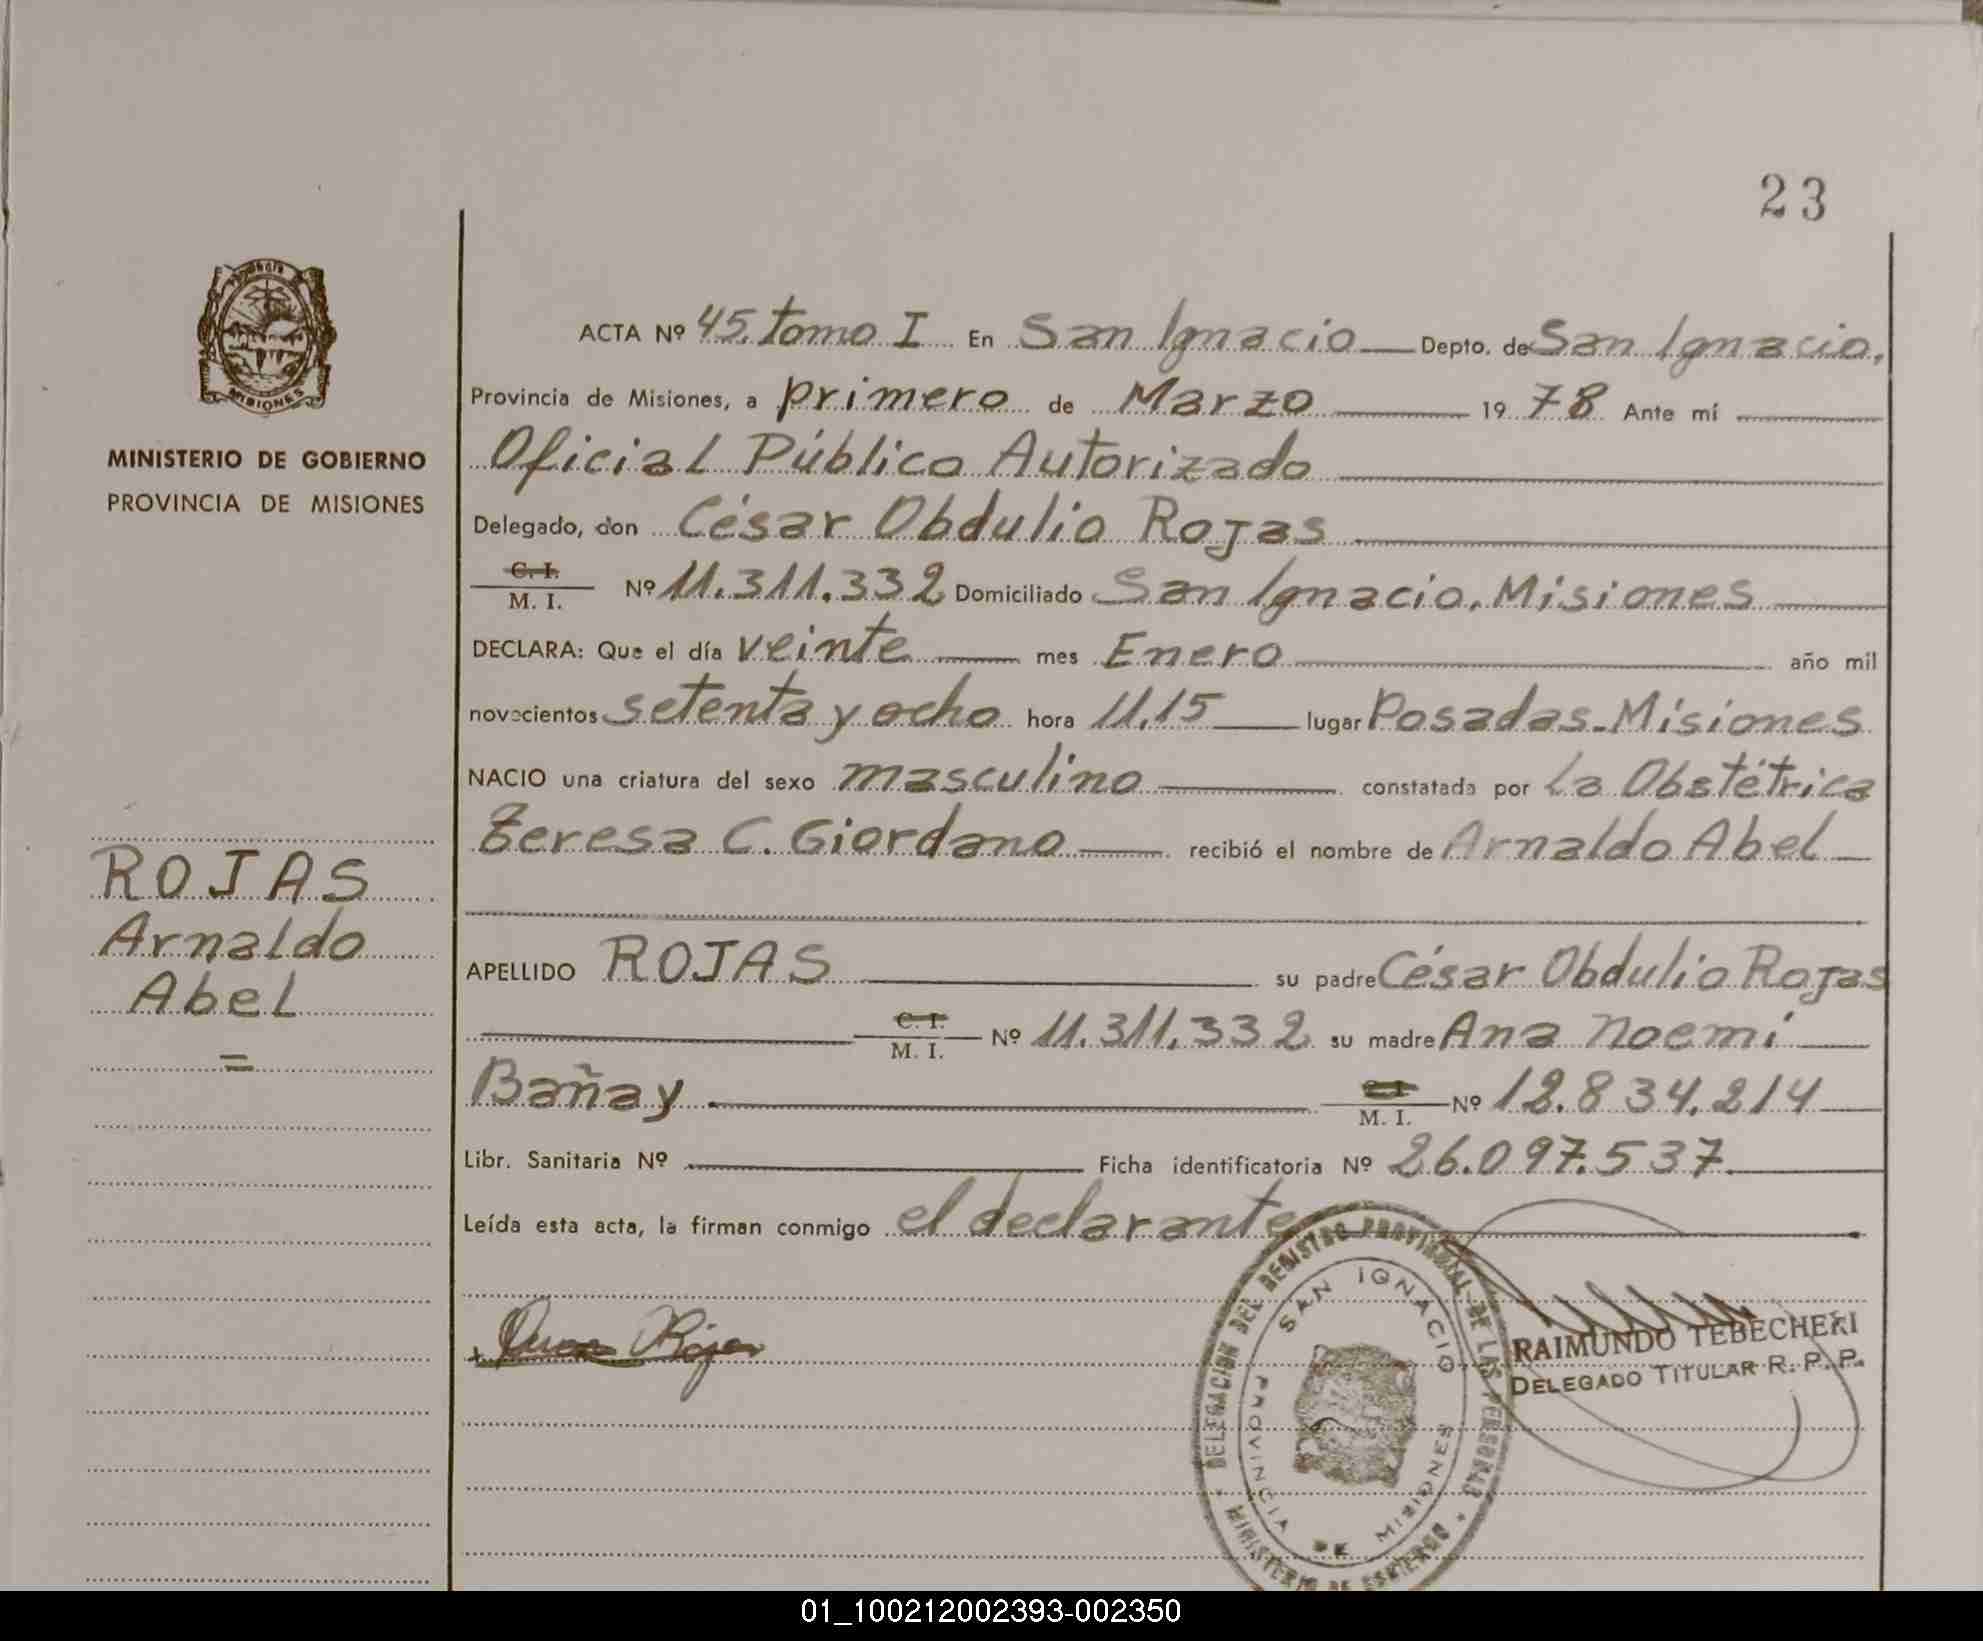 23
MISIONES
MINISTERIO DE GOBIERNO
PROVINCIA DE MISIONES
ROJAS
Arnaldo
Abel
=
ACTA Nº 45. tomo I En San Ignacio Depto. de San Ignacio,
Provincia de Misiones, a primero de Marzo 19 78 Ante mí
Oficial Público Autorizado
Delegado, don César Obdulio Rojas
C. I.
M. I. Nº 11.311.332 Domiciliado San Ignacio. Misiones
DECLARA: Que el día veinte mes Enero año mil
novecientos setenta y ocho hora 11.15 lugar Posadas-Misiones
NACIO una criatura del sexo masculino constatada por La Obstétrica
Teresa C. Giordano recibió el nombre de Arnaldo Abel
APELLIDO ROJAS su padre César Obdulio Rojas
C. I.
M. I. Nº 11.311.332 su madre Ana Noemi
Bañay C. I. M. I. Nº 12.834.214
Libr. Sanitaria Nº Ficha identificatoria Nº 26.097.537
Leída esta acta, la firman conmigo el declarante
Rojas
DELEGACION DEL REGISTRO PROVINCIAL DE LAS PERSONAS
SAN IGNACIO
PROVINCIA DE MISIONES
MINISTERIO DE GOBIERNO
RAIMUNDO TEBECHERI
DELEGADO TITULAR R. P. P.
01_100212002393-002350